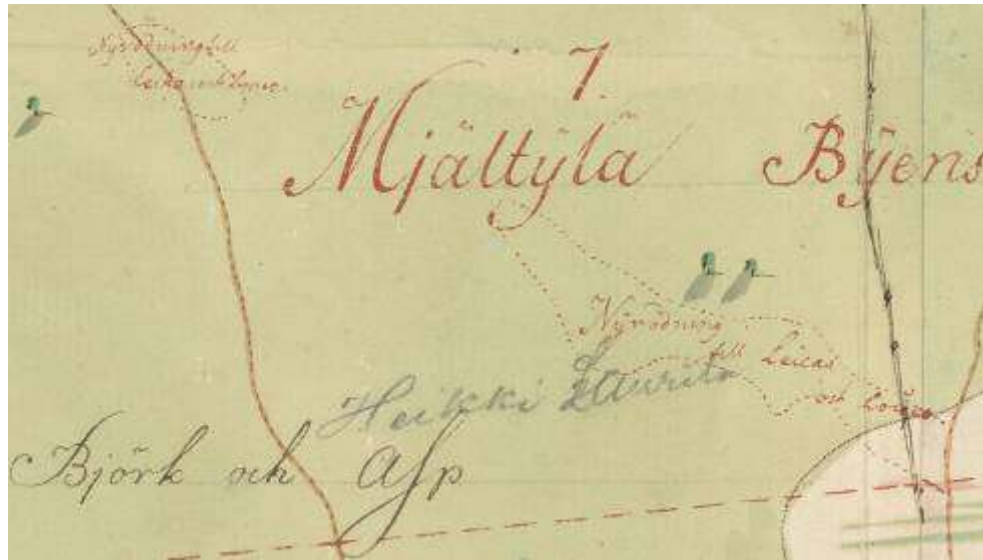 Nyrodning till
Leika och
7.
Mjältÿla Bÿens
Nyrodning
till Leicas
och
Heikki Laurila
Björk och Asp